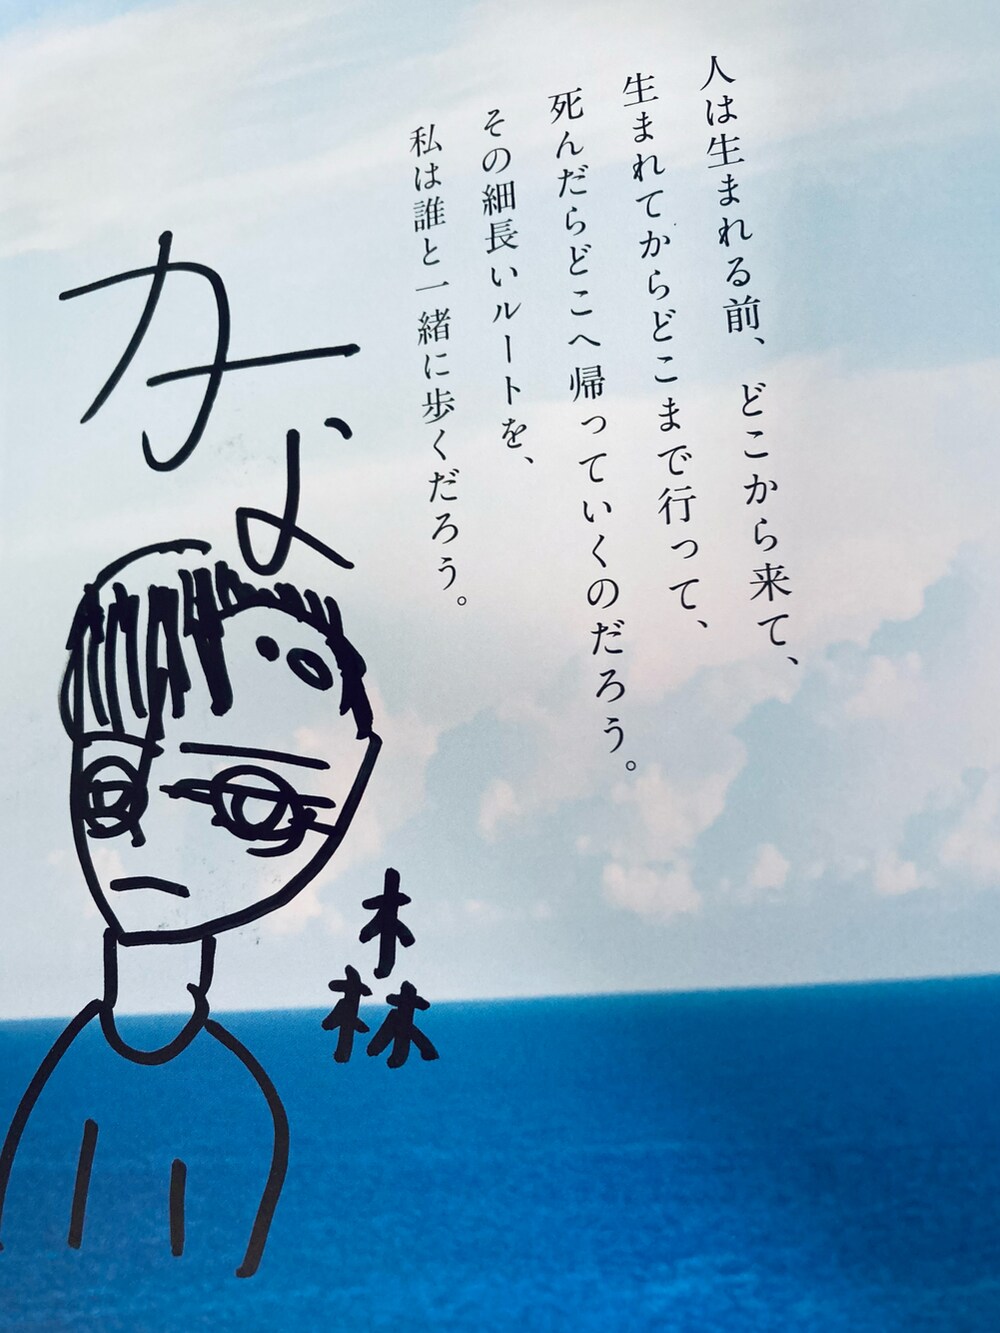 人は生まれる前、どこから来て、
生まれてからどこまで行って、
死んだらどこへ帰っていくのだろう。
その細長いルートを、
私は誰と一緒に歩くだろう。
かよ
森